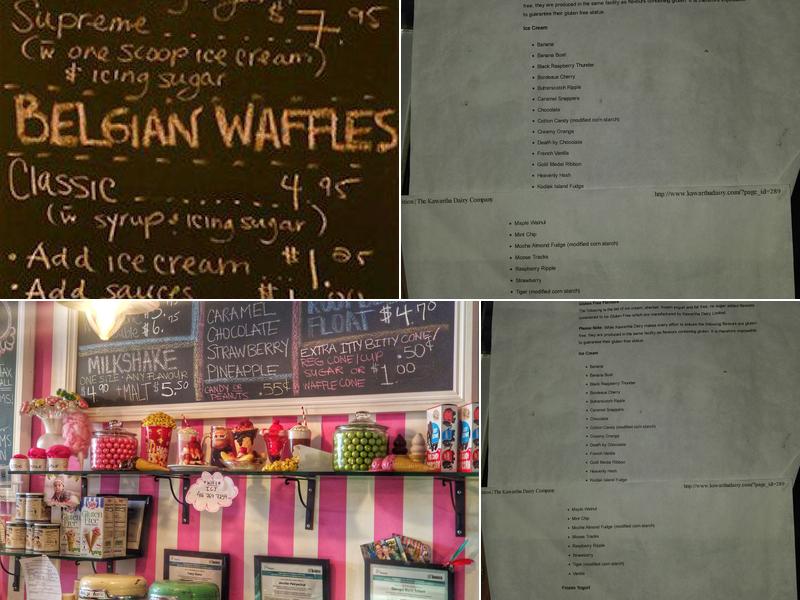 Supreme . . . . . . . $7.95
(w̄ one scoop ice cream)
& icing sugar
BELGIAN WAFFLES
Classic . . . . . . . . . 4.95
(w̄ syrup & icing sugar)
• Add ice cream $1.
• Add sauces
free, they are produced in the same facility as flavours containing gluten. It is therefore impossible
to guarantee their gluten free status.
Ice Cream
• Banana
• Banana Boat
• Black Raspberry Thunder
• Bordeaux Cherry
• Butterscotch Ripple
• Caramel Snappers
• Chocolate
• Cotton Candy (modified corn starch)
• Creamy Orange
• Death by Chocolate
• French Vanilla
• Gold Medal Ribbon
• Heavenly Hash
• Kodiak Island Fudge
| The Kawartha Dairy Company
http://www.kawarthadairy.com/?page_id=289
• Maple Walnut
• Mint Chip
• Mocha Almond Fudge (modified corn starch)
• Moose Tracks
• Raspberry Ripple
• Strawberry
• Tiger (modified corn starch)
$6.
MILKSHAKE
ONE SIZE · ANY FLAVOUR
$4.90 + MALT $5.50
CARAMEL
CHOCOLATE
STRAWBERRY
PINEAPPLE
CANDY OR
PEANUTS .55¢
FLOAT $4.70
EXTRA ITTY BITTY CONE/
REG CONE/CUP .50¢
SUGAR OR $1.00
WAFFLE CONE
Gluten
Free
Gluten Free Flavours
The following is the list of ice cream, sherbet, frozen yogurt and fat free, no sugar added flavours
considered to be Gluten Free which are manufactured by Kawartha Dairy Limited.
Please Note: While Kawartha Dairy makes every effort to ensure the following flavours are gluten
free, they are produced in the same facility as flavours containing gluten. It is therefore impossible
to guarantee their gluten free status.
Ice Cream
• Banana
• Banana Boat
• Black Raspberry Thunder
• Bordeaux Cherry
• Butterscotch Ripple
• Caramel Snappers
• Chocolate
• Cotton Candy (modified corn starch)
• Creamy Orange
• Death by Chocolate
• French Vanilla
• Gold Medal Ribbon
• Heavenly Hash
• Kodiak Island Fudge
| The Kawartha Dairy Company
http://www.kawarthadairy.com/?page_id=289
• Maple Walnut
• Mint Chip
• Mocha Almond Fudge (modified corn starch)
• Moose Tracks
• Raspberry Ripple
• Strawberry
• Tiger (modified corn starch)
• Vanilla
Frozen Yogurt